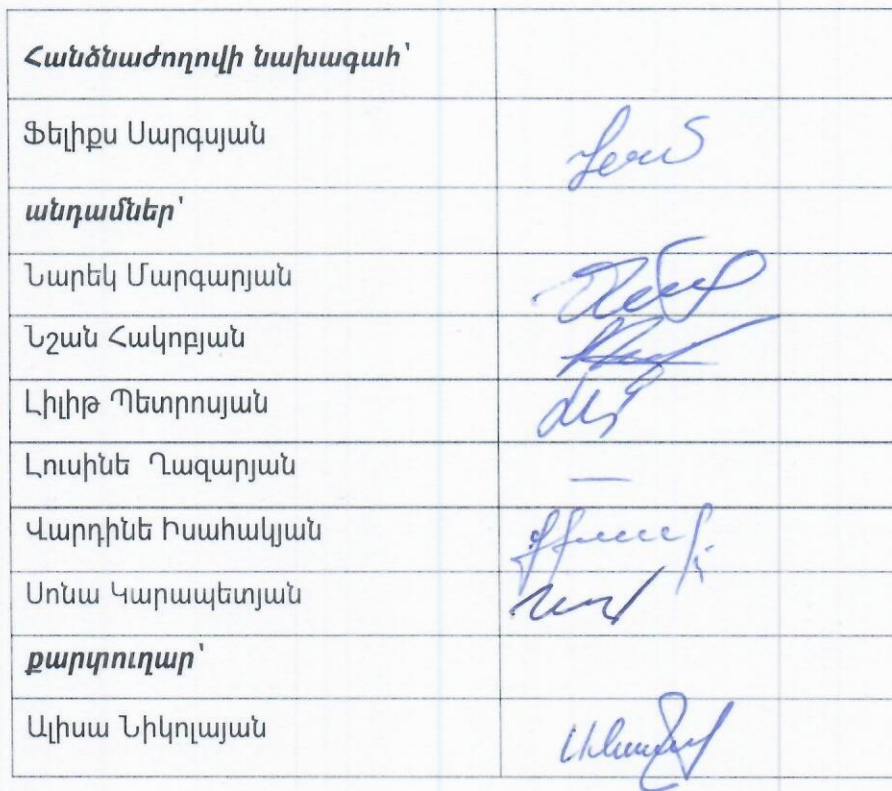 Հանձնաժողովի նախագահ՝
Ֆելիքս Սարգսյան
անդամներ՝
Նարեկ Մարգարյան
Նշան Հակոբյան
Լիլիթ Պետրոսյան
Լուսինե Ղազարյան
—
Վարդինե Իսահակյան
Սոնա Կարապետյան
քարտուղար՝
Ալիսա Նիկոլայան